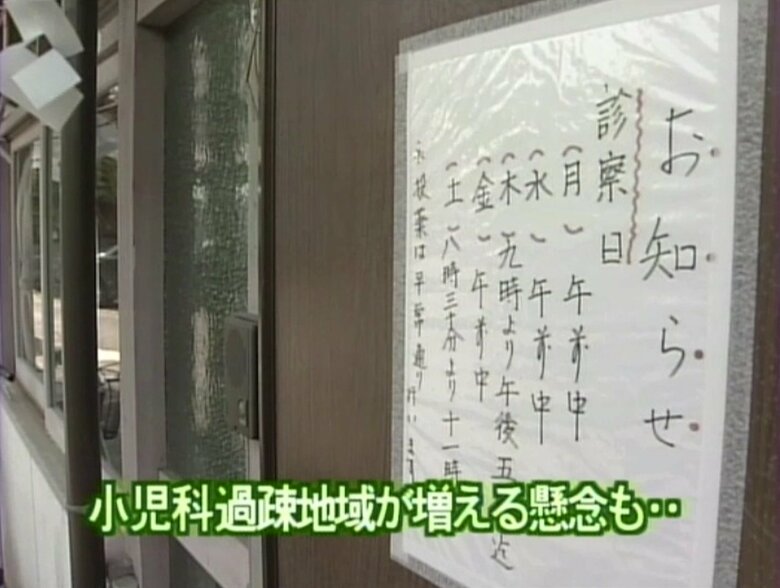 お知らせ
診察日
(月)午前中
(水)午前中
(木)九時より午後五
迄
(金)午前中
(土)八時三十分より十一時
投薬は平常通り行います
小児科過疎地域が増える懸念も‥